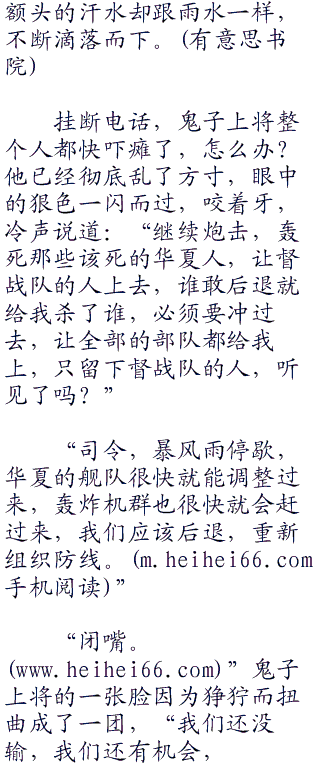 额头的汗水却跟雨水一样，
不断滴落而下。(有意思书
院)
挂断电话，鬼子上将整
个人都快吓瘫了，怎么办？
他已经彻底乱了方寸，眼中
的狠色一闪而过，咬着牙，
冷声说道：“继续炮击，轰
死那些该死的华夏人，让督
战队的人上去，谁敢后退就
给我杀了谁，必须要冲过
去，让全部的部队都给我
上，只留下督战队的人，听
见了吗？”
“司令，暴风雨停歇，
华夏的舰队很快就能调整过
来，轰炸机群也很快就会赶
过来，我们应该后退，重新
组织防线。(m.heihei66.com
手机阅读)”
“闭嘴。
(www.heihei66.com)”鬼子
上将的一张脸因为狰狞而扭
曲成了一团，“我们还没
输，我们还有机会，